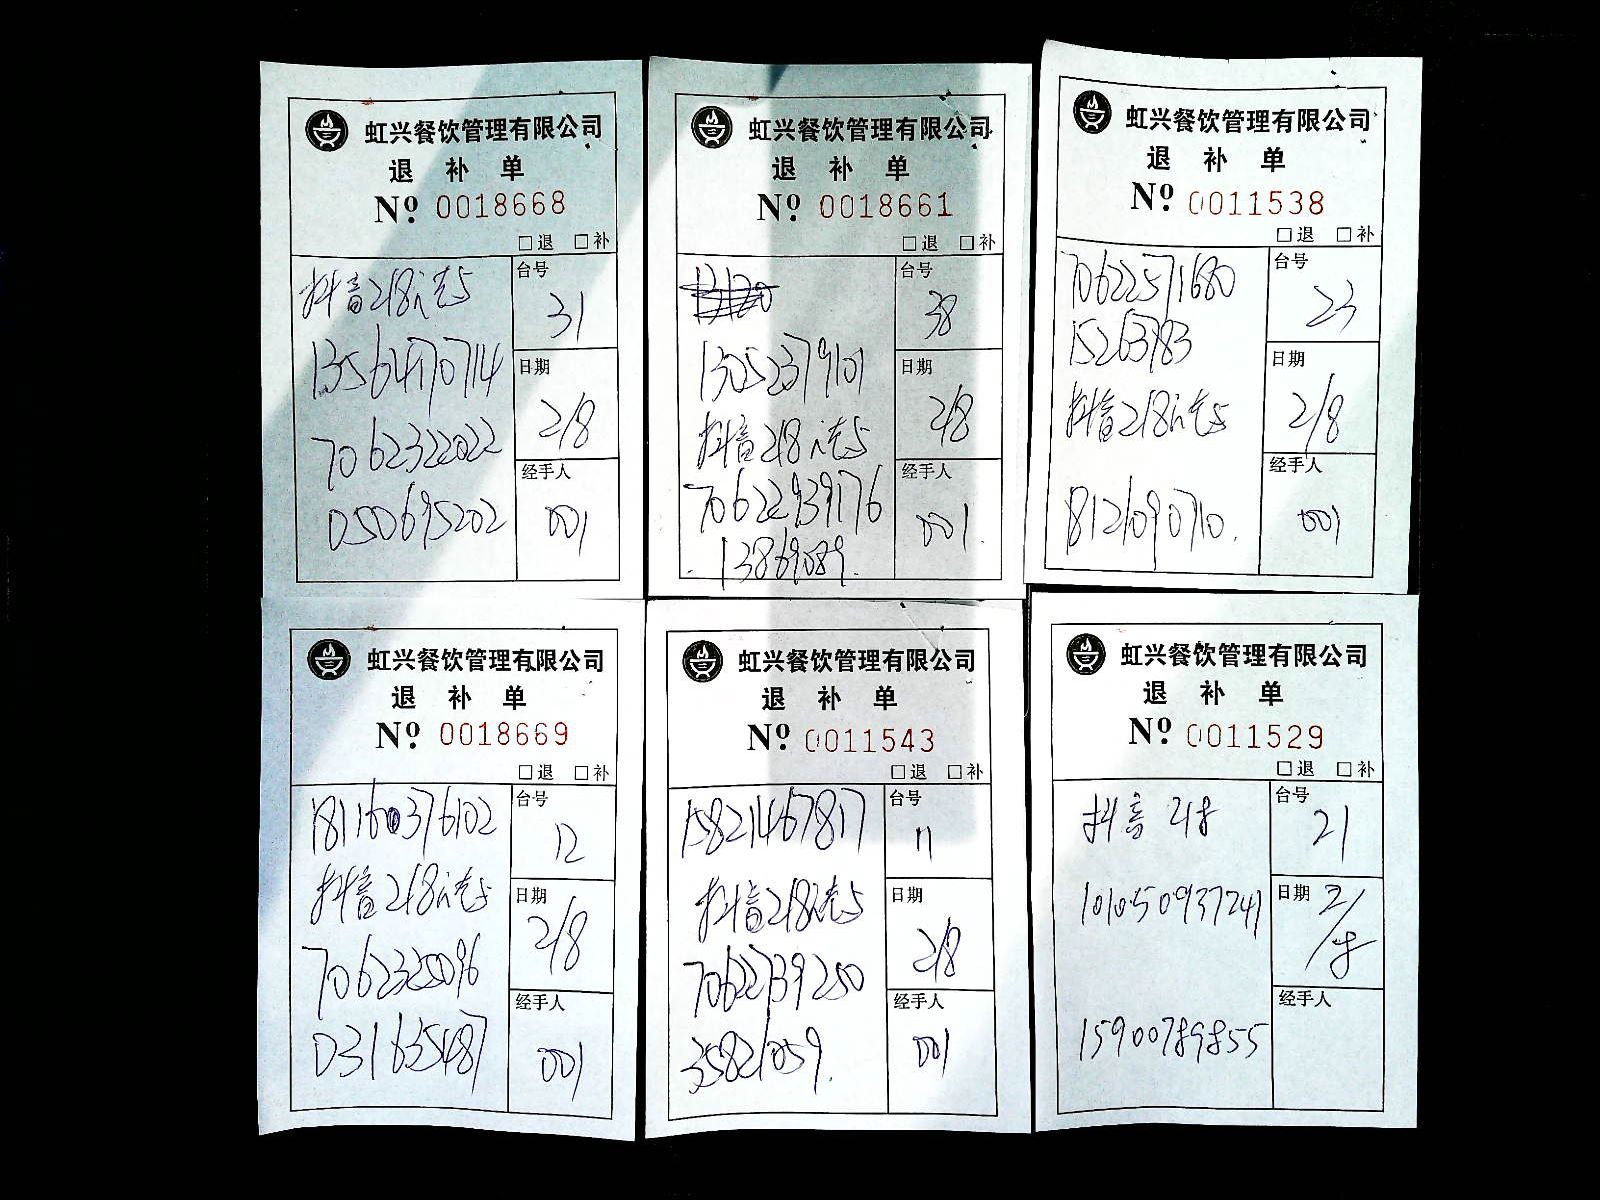 虹兴餐饮管理有限公司
退 补 单
Nº 0018668
□退 □补
抖音218
13564970714
7062322022
050695202
台号
31
日期
2/8
经手人
001
虹兴餐饮管理有限公司
退 补 单
Nº 0018661
□退 □补
13052379101
抖音218
70622939176
13869089.
台号
38
日期
2/8
经手人
001.
虹兴餐饮管理有限公司
退 补 单
Nº 0011538
□退 □补
70622571680
15263983
抖音218
18121090710.
台号
23
日期
2/8
经手人
001
虹兴餐饮管理有限公司
退 补 单
Nº 0018669
□退 □补
181160376102
抖音218
7062325096
031635487
台号
12
日期
2/8
经手人
001
虹兴餐饮管理有限公司
退 补 单
Nº 0011543
□退 □补
15821467817
抖音218
70622739250
35821059.
台号
11
日期
2/8
经手人
001
虹兴餐饮管理有限公司
退 补 单
Nº 0011529
□退 □补
抖音 218
101050937241
15900789855
台号
21
日期
2/8
经手人